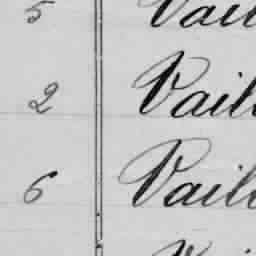 5 Vail
2 Vail
6 Vail